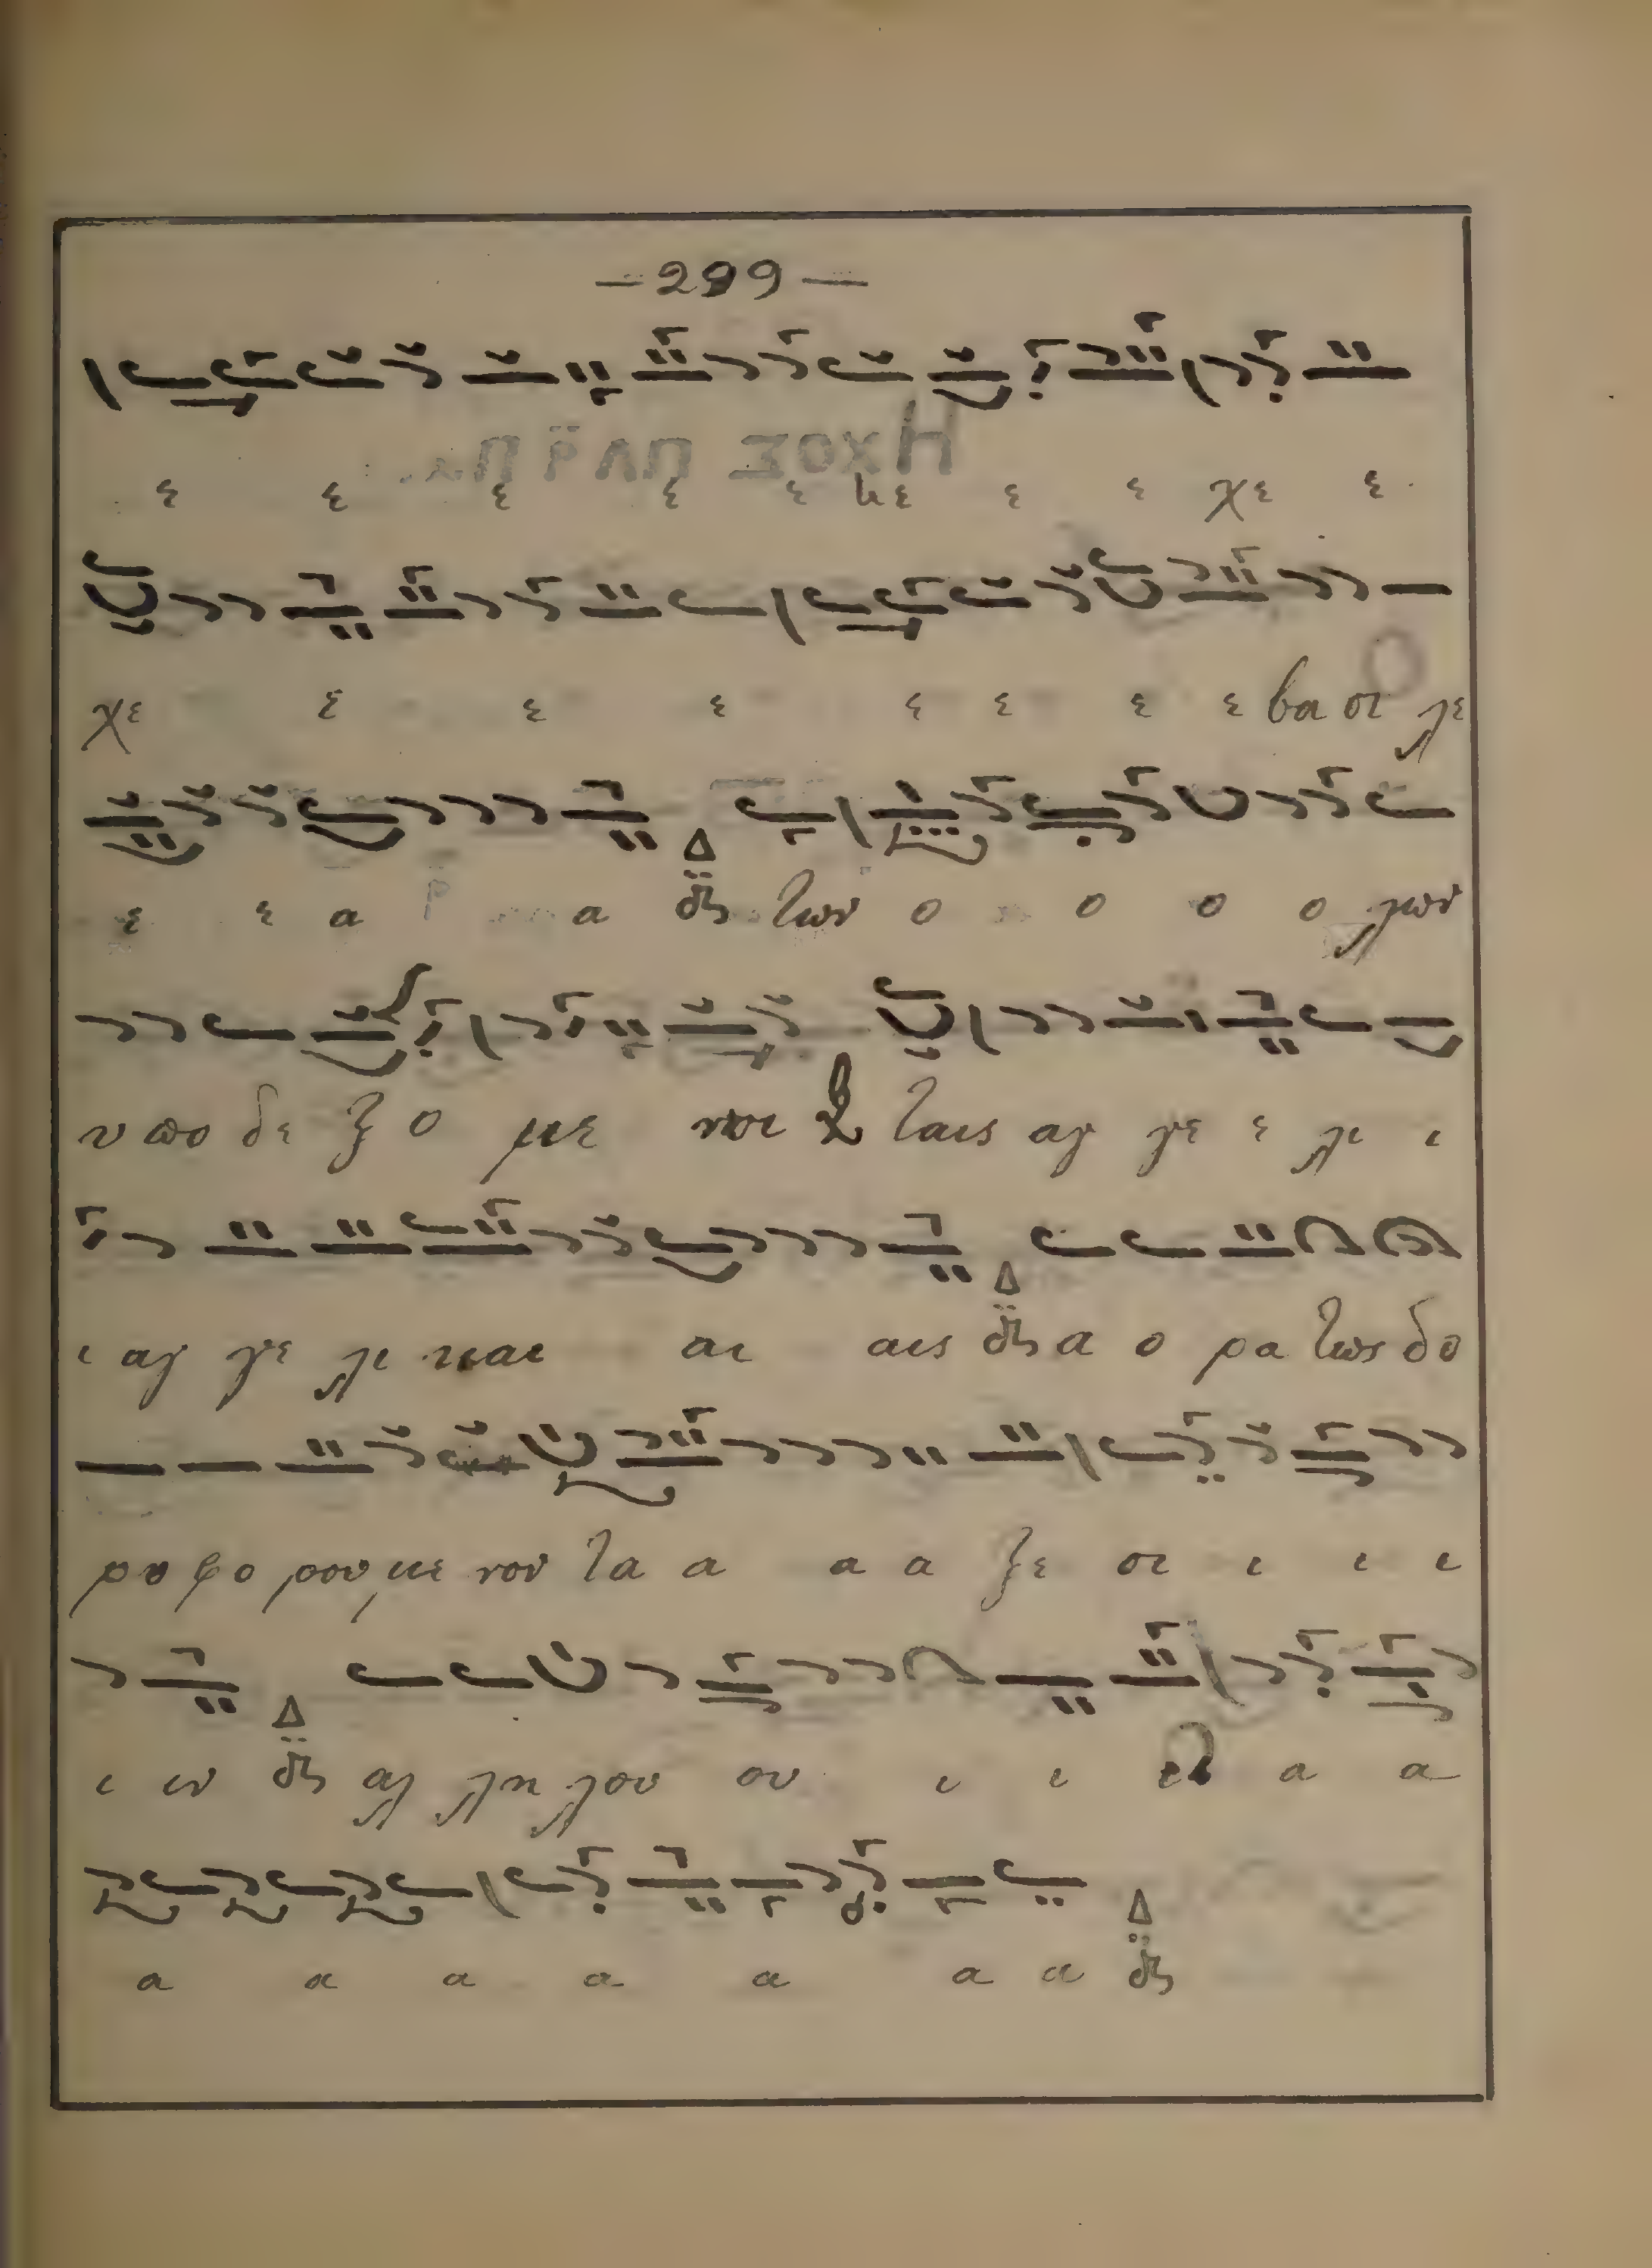 —299—
ε ε ε ε ε με ε ε χε ε
χε ε ε ε ε ε ε ε βα σι λε
ε ε α α δι των ο ο ο ο λων
υ πο δε ξο με νοι ταις αγ γε ε λι ι
ι αγ γε λι και αι αις δι α ο ρα τως δο
ρυ φο ρου με νον τα α α α ξε σι ι ι ι
ι ιν δι αλ λη λου ου ι ι α α
α α α α α α α δι